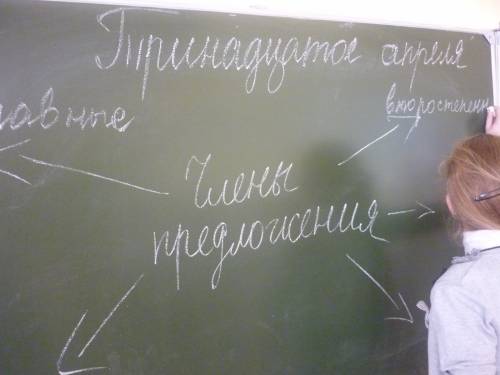 Тринадцатое апреля
второстепенн
лавные
Члены
предложения